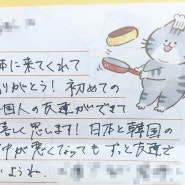 本に来てくれて
りがとう！初めての
国人の友達ができて
喜しく思います！日本と韓国の
仲が悪くなっても ずっと友達で
いようね